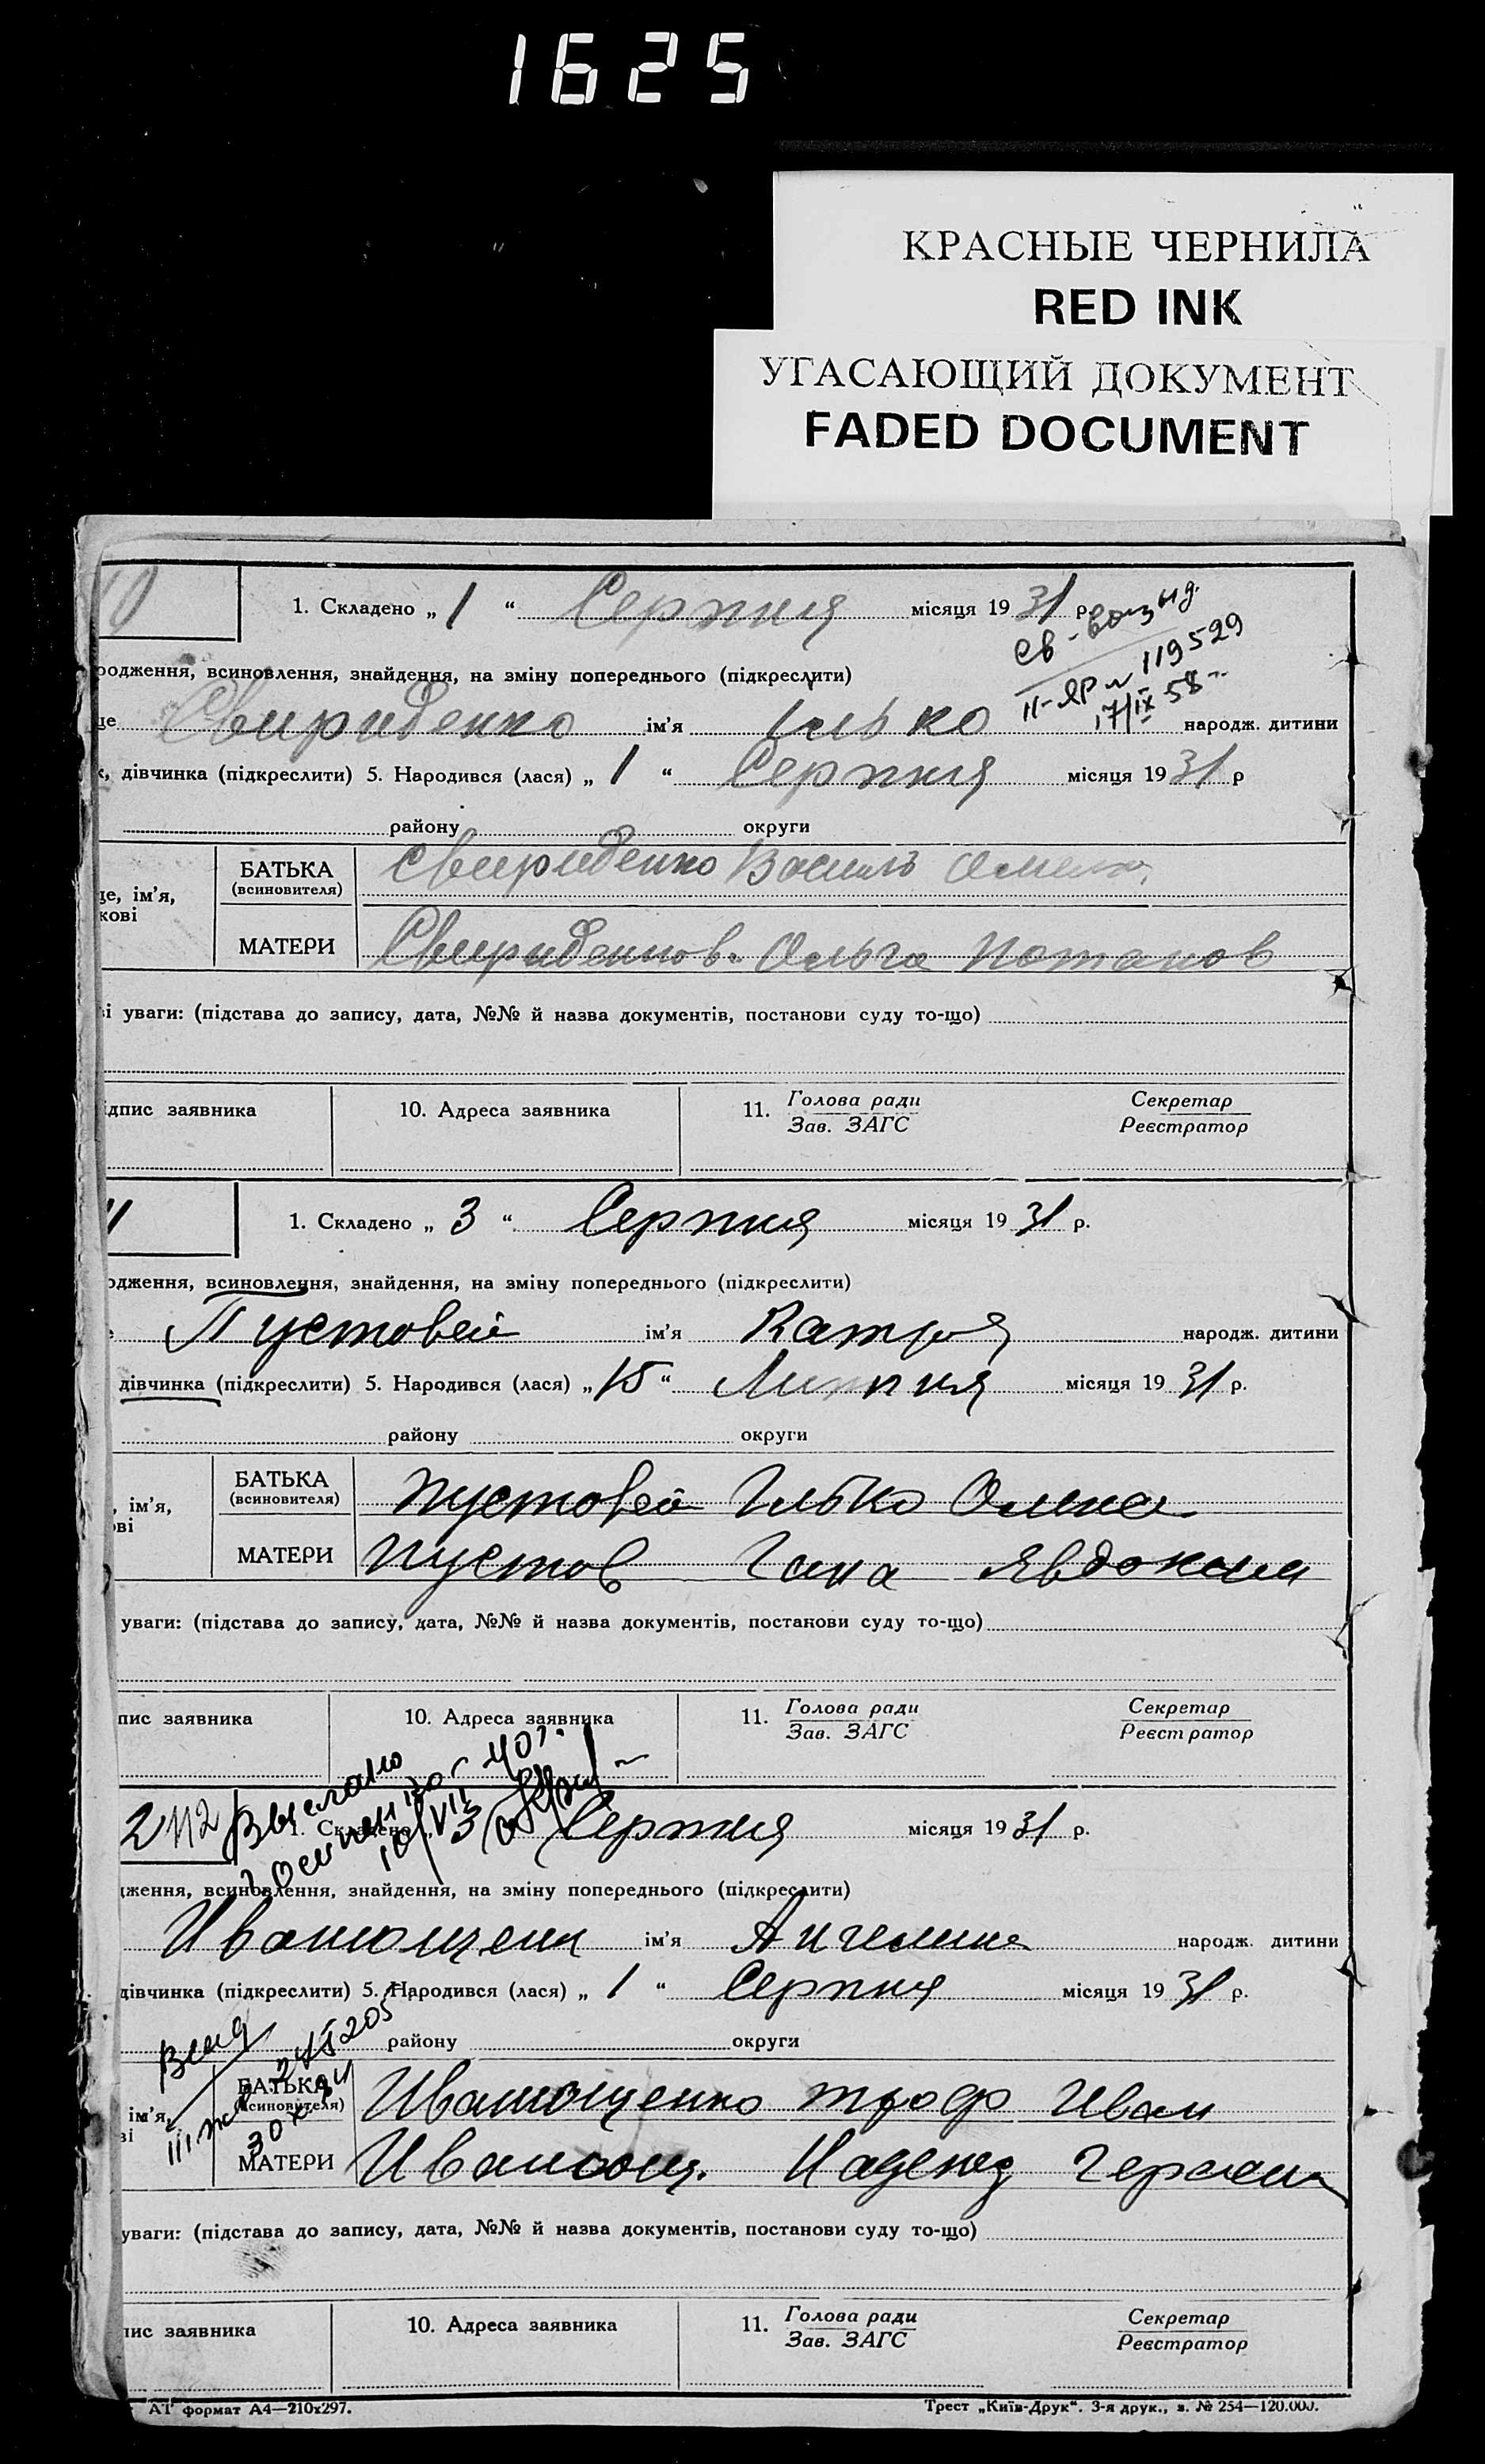 1625
КРАСНЫЕ ЧЕРНИЛА
RED INK
УГАСАЮЩИЙ ДОКУМЕНТ
FADED DOCUMENT
1. Складено „ 1 “ Серпня місяця 19 31 р
родження, всиновлення, знайдення, на зміну попереднього (підкреслити)
II-ЯР № 119529
17/IX 58
це Свириденко ім'я Ілько народж. дитини
к, дівчинка (підкреслити) 5. Народився (лася) „ 1 “ Серпня місяця 19 31 р
району округи
БАТЬКА Свириденко Василь
(всиновителя)
це, ім'я,
кові
МАТЕРИ Ольга Потапов
ві уваги: (підстава до запису, дата, №№ й назва документів, постанови суду то-що)
ідпис заявника 10. Адреса заявника 11. Голова ради Секретар
Зав. ЗАГС Реєстратор
11
1. Складено „ 3 “ Серпня місяця 19 31 р.
одження, всиновлення, знайдення, на зміну попереднього (підкреслити)
Пустовей ім'я Катря народж. дитини
дівчинка (підкреслити) 5. Народився (лася) „ 15 “ Липня місяця 19 31 р.
району округи
БАТЬКА Пустовей Ілько Олекс
(всиновителя)
, ім'я,
ові
МАТЕРИ Пустов Гана Явдоким
уваги: (підстава до запису, дата, №№ й назва документів, постанови суду то-що)
пис заявника 10. Адреса заявника 11. Голова ради Секретар
Зав. ЗАГС Реєстратор
Выслано
10/VII
1. Складено „ 3 Серпня місяця 19 31 р.
дження, всиновлення, знайдення, на зміну попереднього (підкреслити)
ім'я Ангелина народж. дитини
дівчинка (підкреслити) 5. Народився (лася) „ 1 “ Серпня місяця 19 31 р.
району округи
БАТЬКА Иванющенко Троф Иван
(всиновителя)
ім'я,
ві
МАТЕРИ Иванющ. Надежд Герасим
уваги: (підстава до запису, дата, №№ й назва документів, постанови суду то-що)
пис заявника 10. Адреса заявника 11. Голова ради Секретар
Зав. ЗАГС Реєстратор
АТ формат А4—210х297. Трест „Київ-Друк“. 3-я друк., з. № 254—120.000.